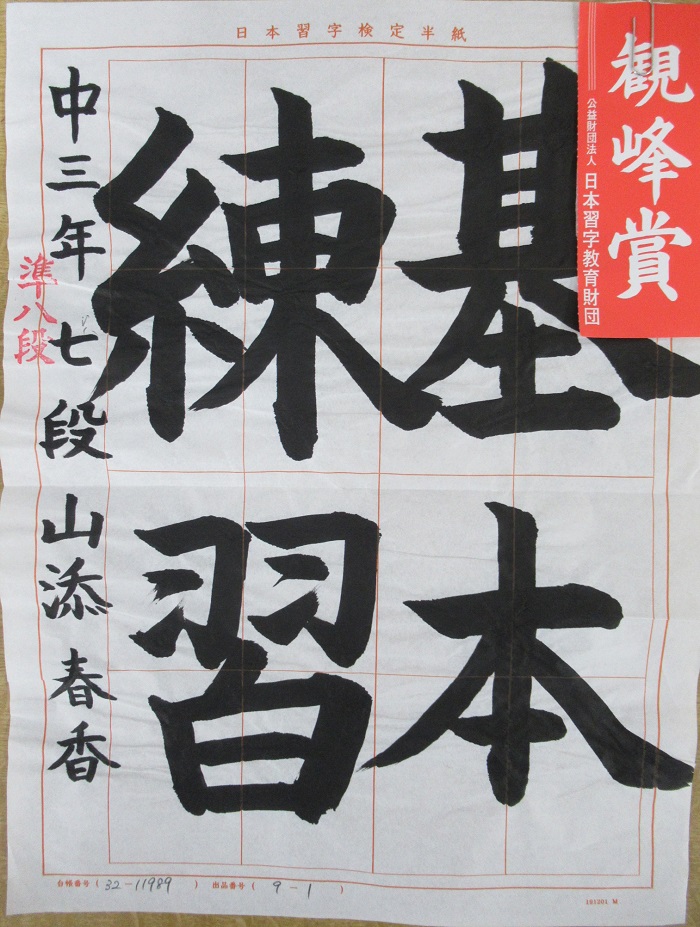 日本習字検定半紙
観峰賞
公益財団法人 日本習字教育財団
基本
練習
中三年七段 山添春香
準八段
台帳番号 ( 32-11989 ) 出品番号 ( 9-1 )
181201 M